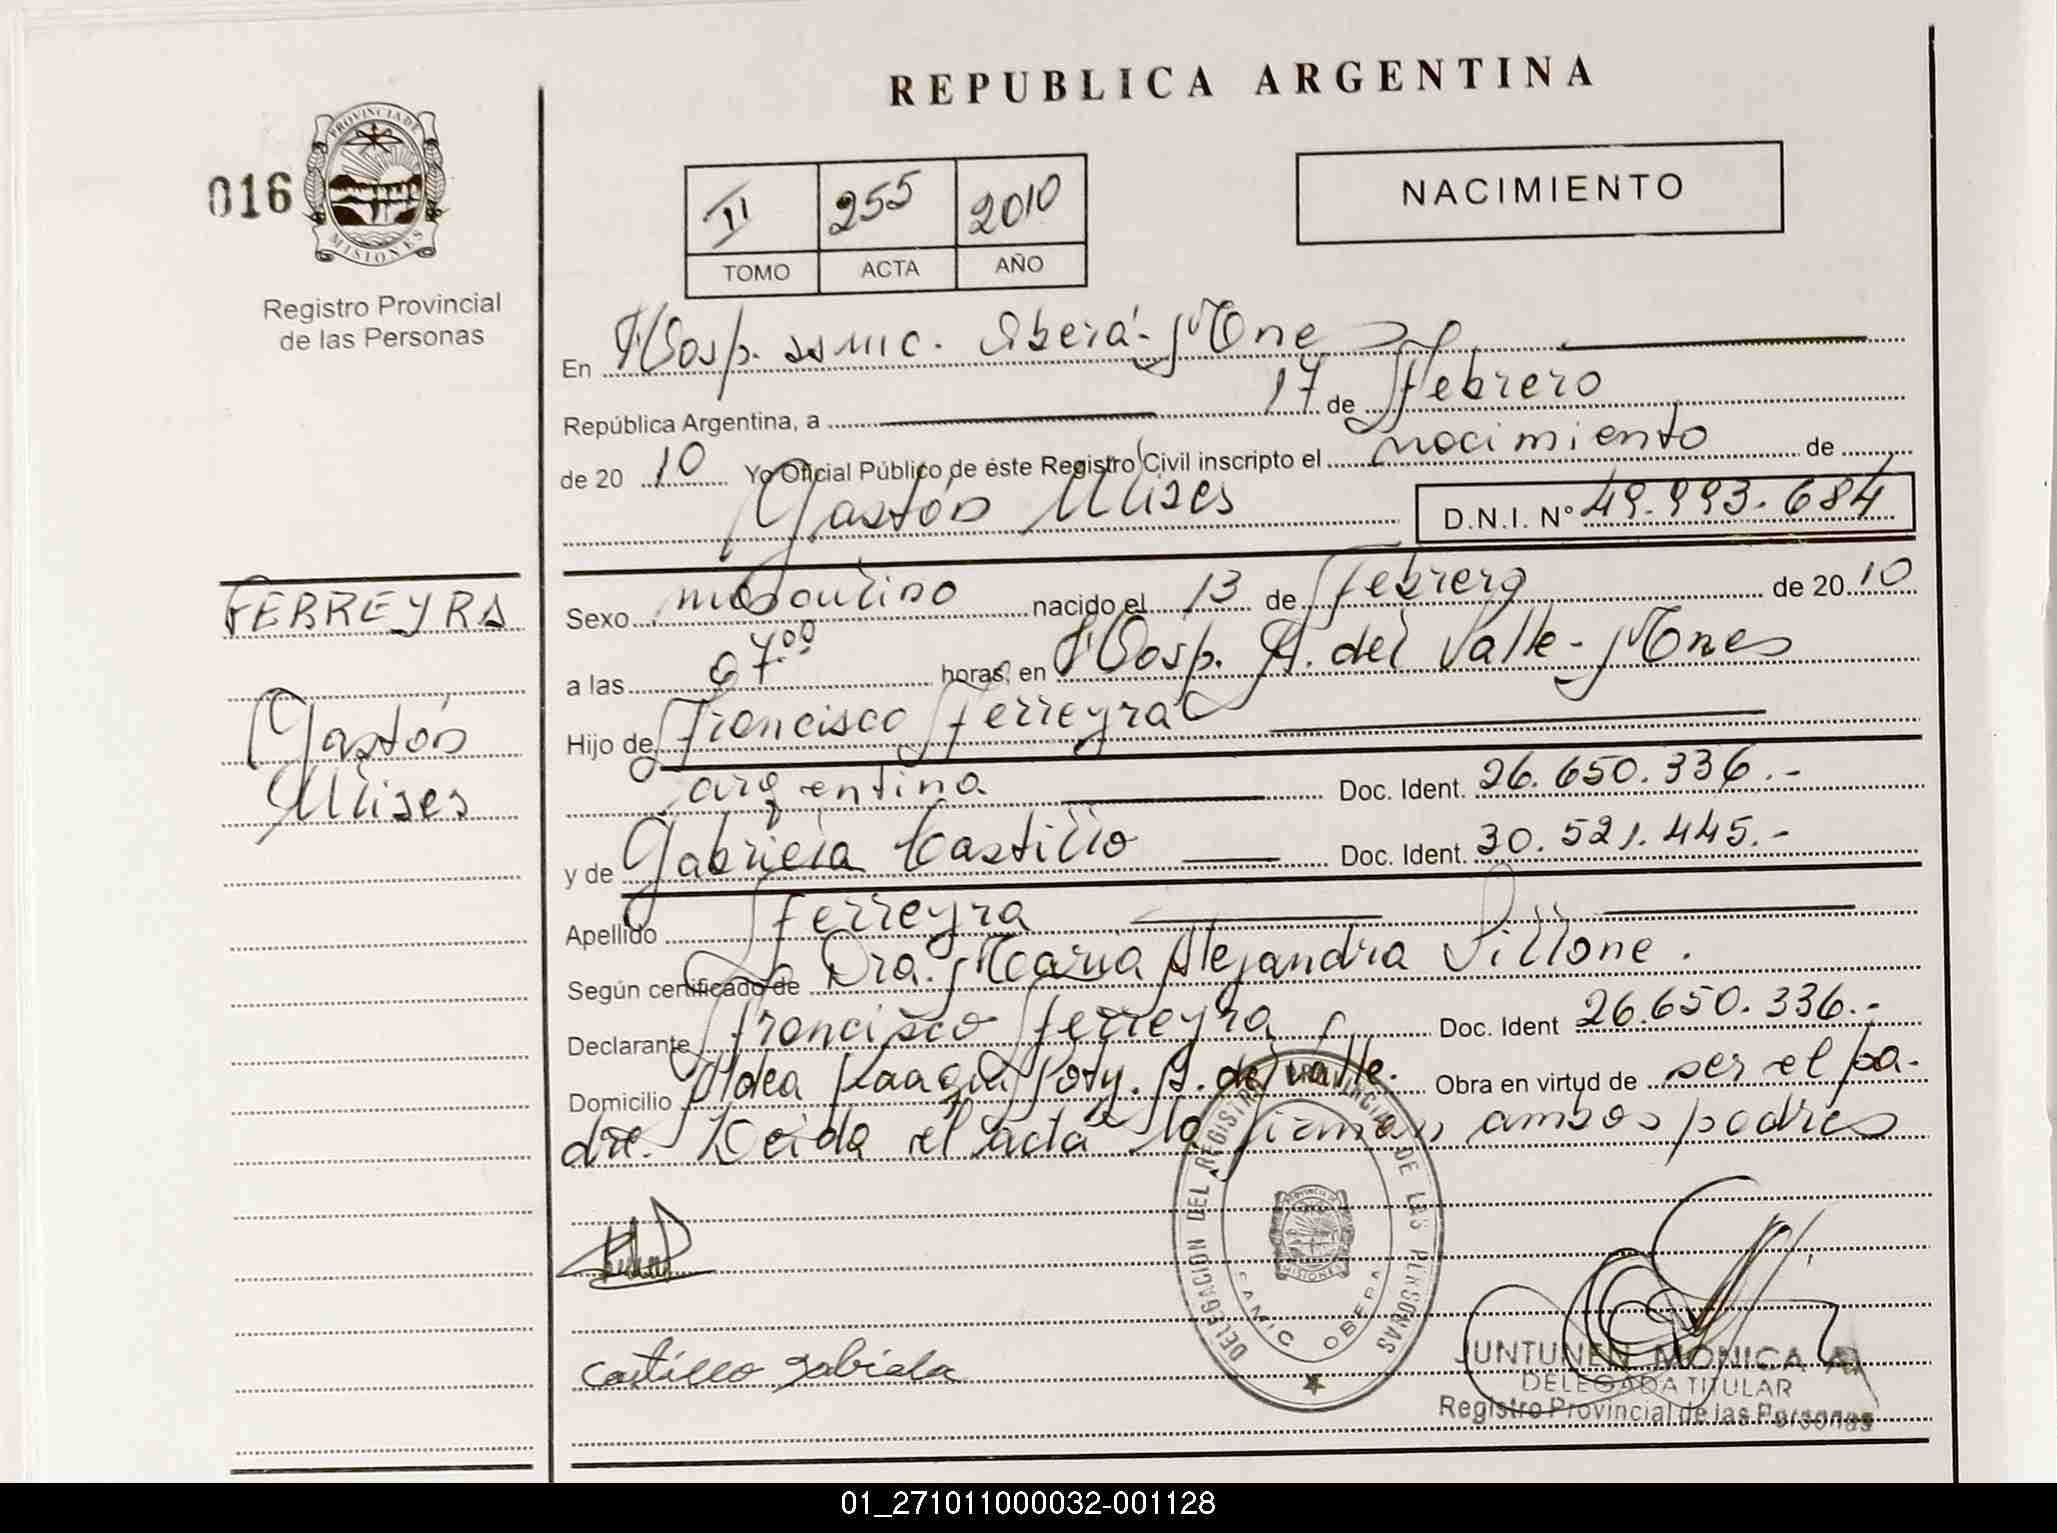 REPUBLICA ARGENTINA
016
PROVINCIA DE
MISIONES
Registro Provincial
de las Personas
II 255 2010
TOMO ACTA AÑO
NACIMIENTO
En Hosp. SAMIC. Oberá- Mnes
República Argentina, a 17 de Febrero
de 20 10 Yo Oficial Público de éste Registro Civil inscripto el nacimiento de
Gastón Ulises D.N.I. N° 49.993.684
FERREYRA
Gastón
Ulises
Sexo masculino nacido el 13 de Febrero de 20 10
a las 07.00 horas, en Hosp. A. del Valle- Mnes
Hijo de Francisco Ferreyra
argentina Doc. Ident. 26.650.336.-
y de Gabriela Castillo Doc. Ident. 30.521.445.-
Apellido Ferreyra
Según certificado de Dra. María Alejandra Pillone.
Declarante Francisco Ferreyra Doc. Ident 26.650.336.-
Domicilio Aldea Kaaguy Poty. A. del Valle. Obra en virtud de ser el pa-
dre. Leida el acta la firman ambos padres
DELEGACION DEL REGISTRO PROVINCIAL DE LAS PERSONAS
SAMIC OBERA
MISIONES
Castillo Gabriela
JUNTUNEN MONICA A.
DELEGADA TITULAR
Registro Provincial de las Personas
01_271011000032-001128